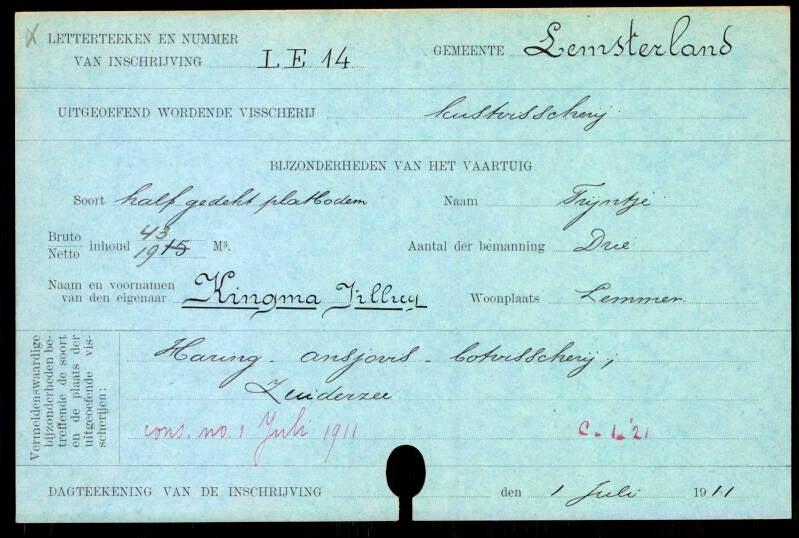 LETTERTEEKEN EN NUMMER
VAN INSCHRIJVING LE 14
GEMEENTE Lemsterland
UITGEOEFEND WORDENDE VISSCHERIJ kustvisscherij
BIJZONDERHEDEN VAN HET VAARTUIG
Soort half gedekt platbodem Naam Trijntje
Bruto 43
Netto inhoud 19 15 M³. Aantal der bemanning Drie
Naam en voornamen
van den eigenaar Kingma Woonplaats Lemmer.
Vermeldenswaardige
bijzonderheden be-
treffende de soort
en de plaats der
uitgeoefende vis-
scherijen:
Haring - ansjovis - botvisscherij;
Zuiderzee
cons. no. 1 Juli 1911 C-1-'21
DAGTEEKENING VAN DE INSCHRIJVING den 1 Juli 1911